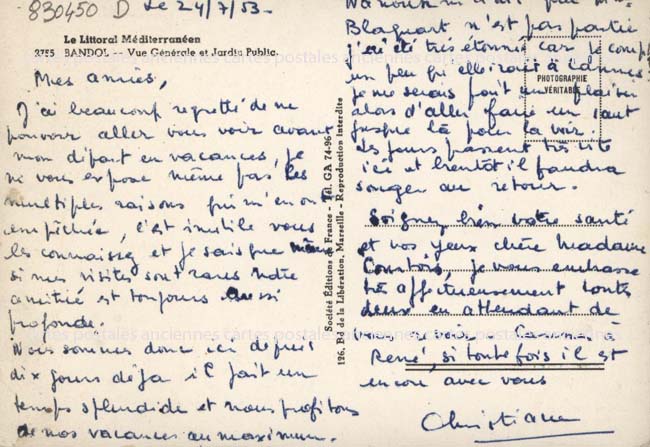 830450 D Le 24/7/53.
Le Littoral Méditerranéen
2755 BANDOL -- Vue Générale et Jardin Public.
Mes amies,
J'ai beaucoup regretté de ne
pouvoir aller vous voir avant
mon départ en vacances, je
ne vous expose même pas les
multiples raisons qui m'en ont
empêchée, c'est inutile vous
les connaissez et je sais que même
si mes visites sont rares notre
amitié est toujours aussi
profonde.
Nous sommes donc ici depuis
dix jours déjà il fait un
temps splendide et nous profitons
de nos vacances au maximum.
Société Éditions de France - Tél. GA 74-96
126, Bd de la Libération, Marseille - Reproduction Interdite
PHOTOGRAPHIE
VÉRITABLE
Blaquart n'est pas partie
j'ai été très étonnée car je
un peu elle irait à Cannes
je me serais fait un plaisir
alors d'aller faire un saut
jusque là pour la voir.
Les jours passent très vite
ici et bientôt il faudra
songer au retour.
Soignez bien votre santé
et vos yeux chère Madame
je vous embrasse
très affectueusement toutes
deux en attendant de
vous
René, si toutefois il est
encore avec vous
Christiane
cartes postales anciennes cartes postales anciennes